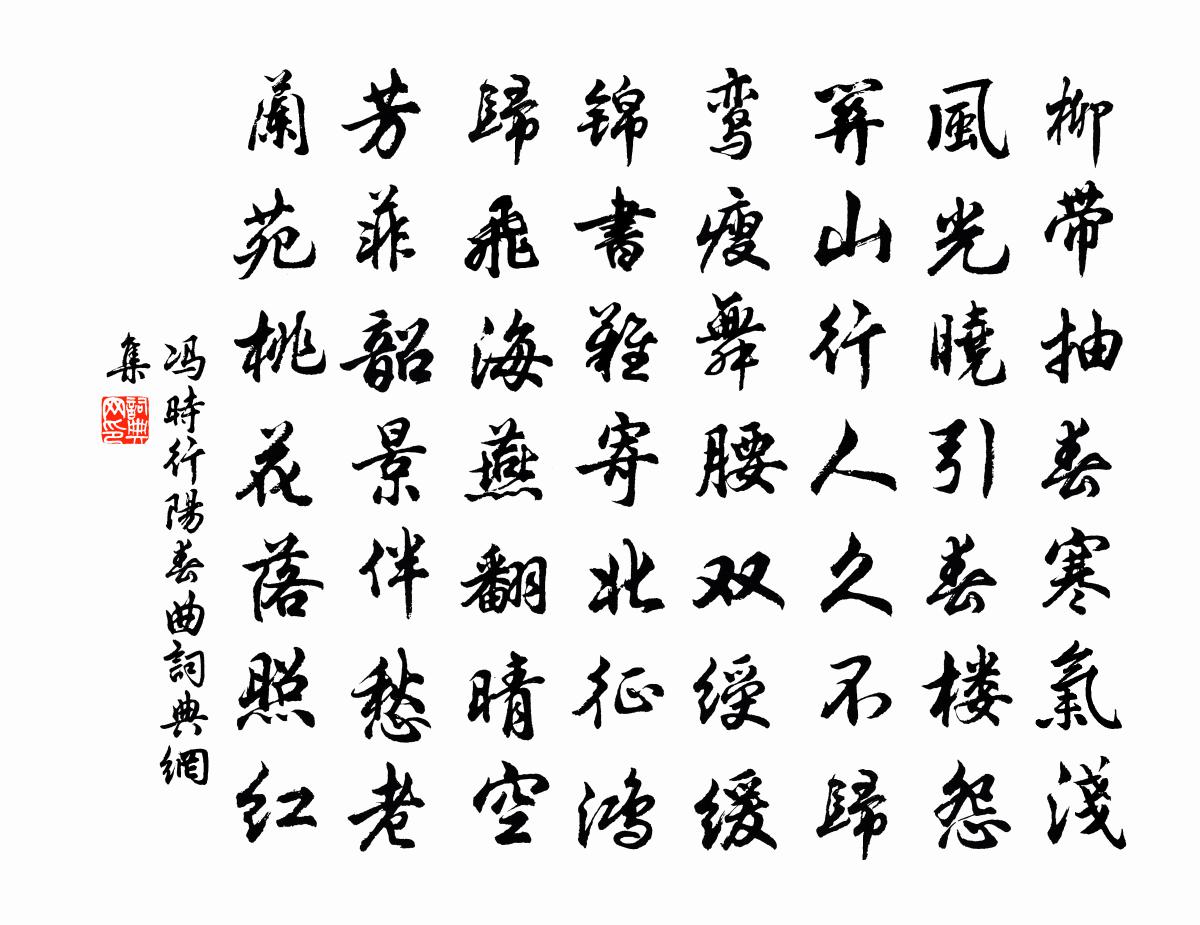 柳带抽春寒氣淺
風光曉引春楼怨
関山行人久不歸
鸾瘦舞腰双绶缓
锦書難寄北征鴻
歸飛海燕翻晴空
芳菲韶景伴愁老
蘭苑桃花落照红
冯時行陽春曲詞典網
集
詞典
网印